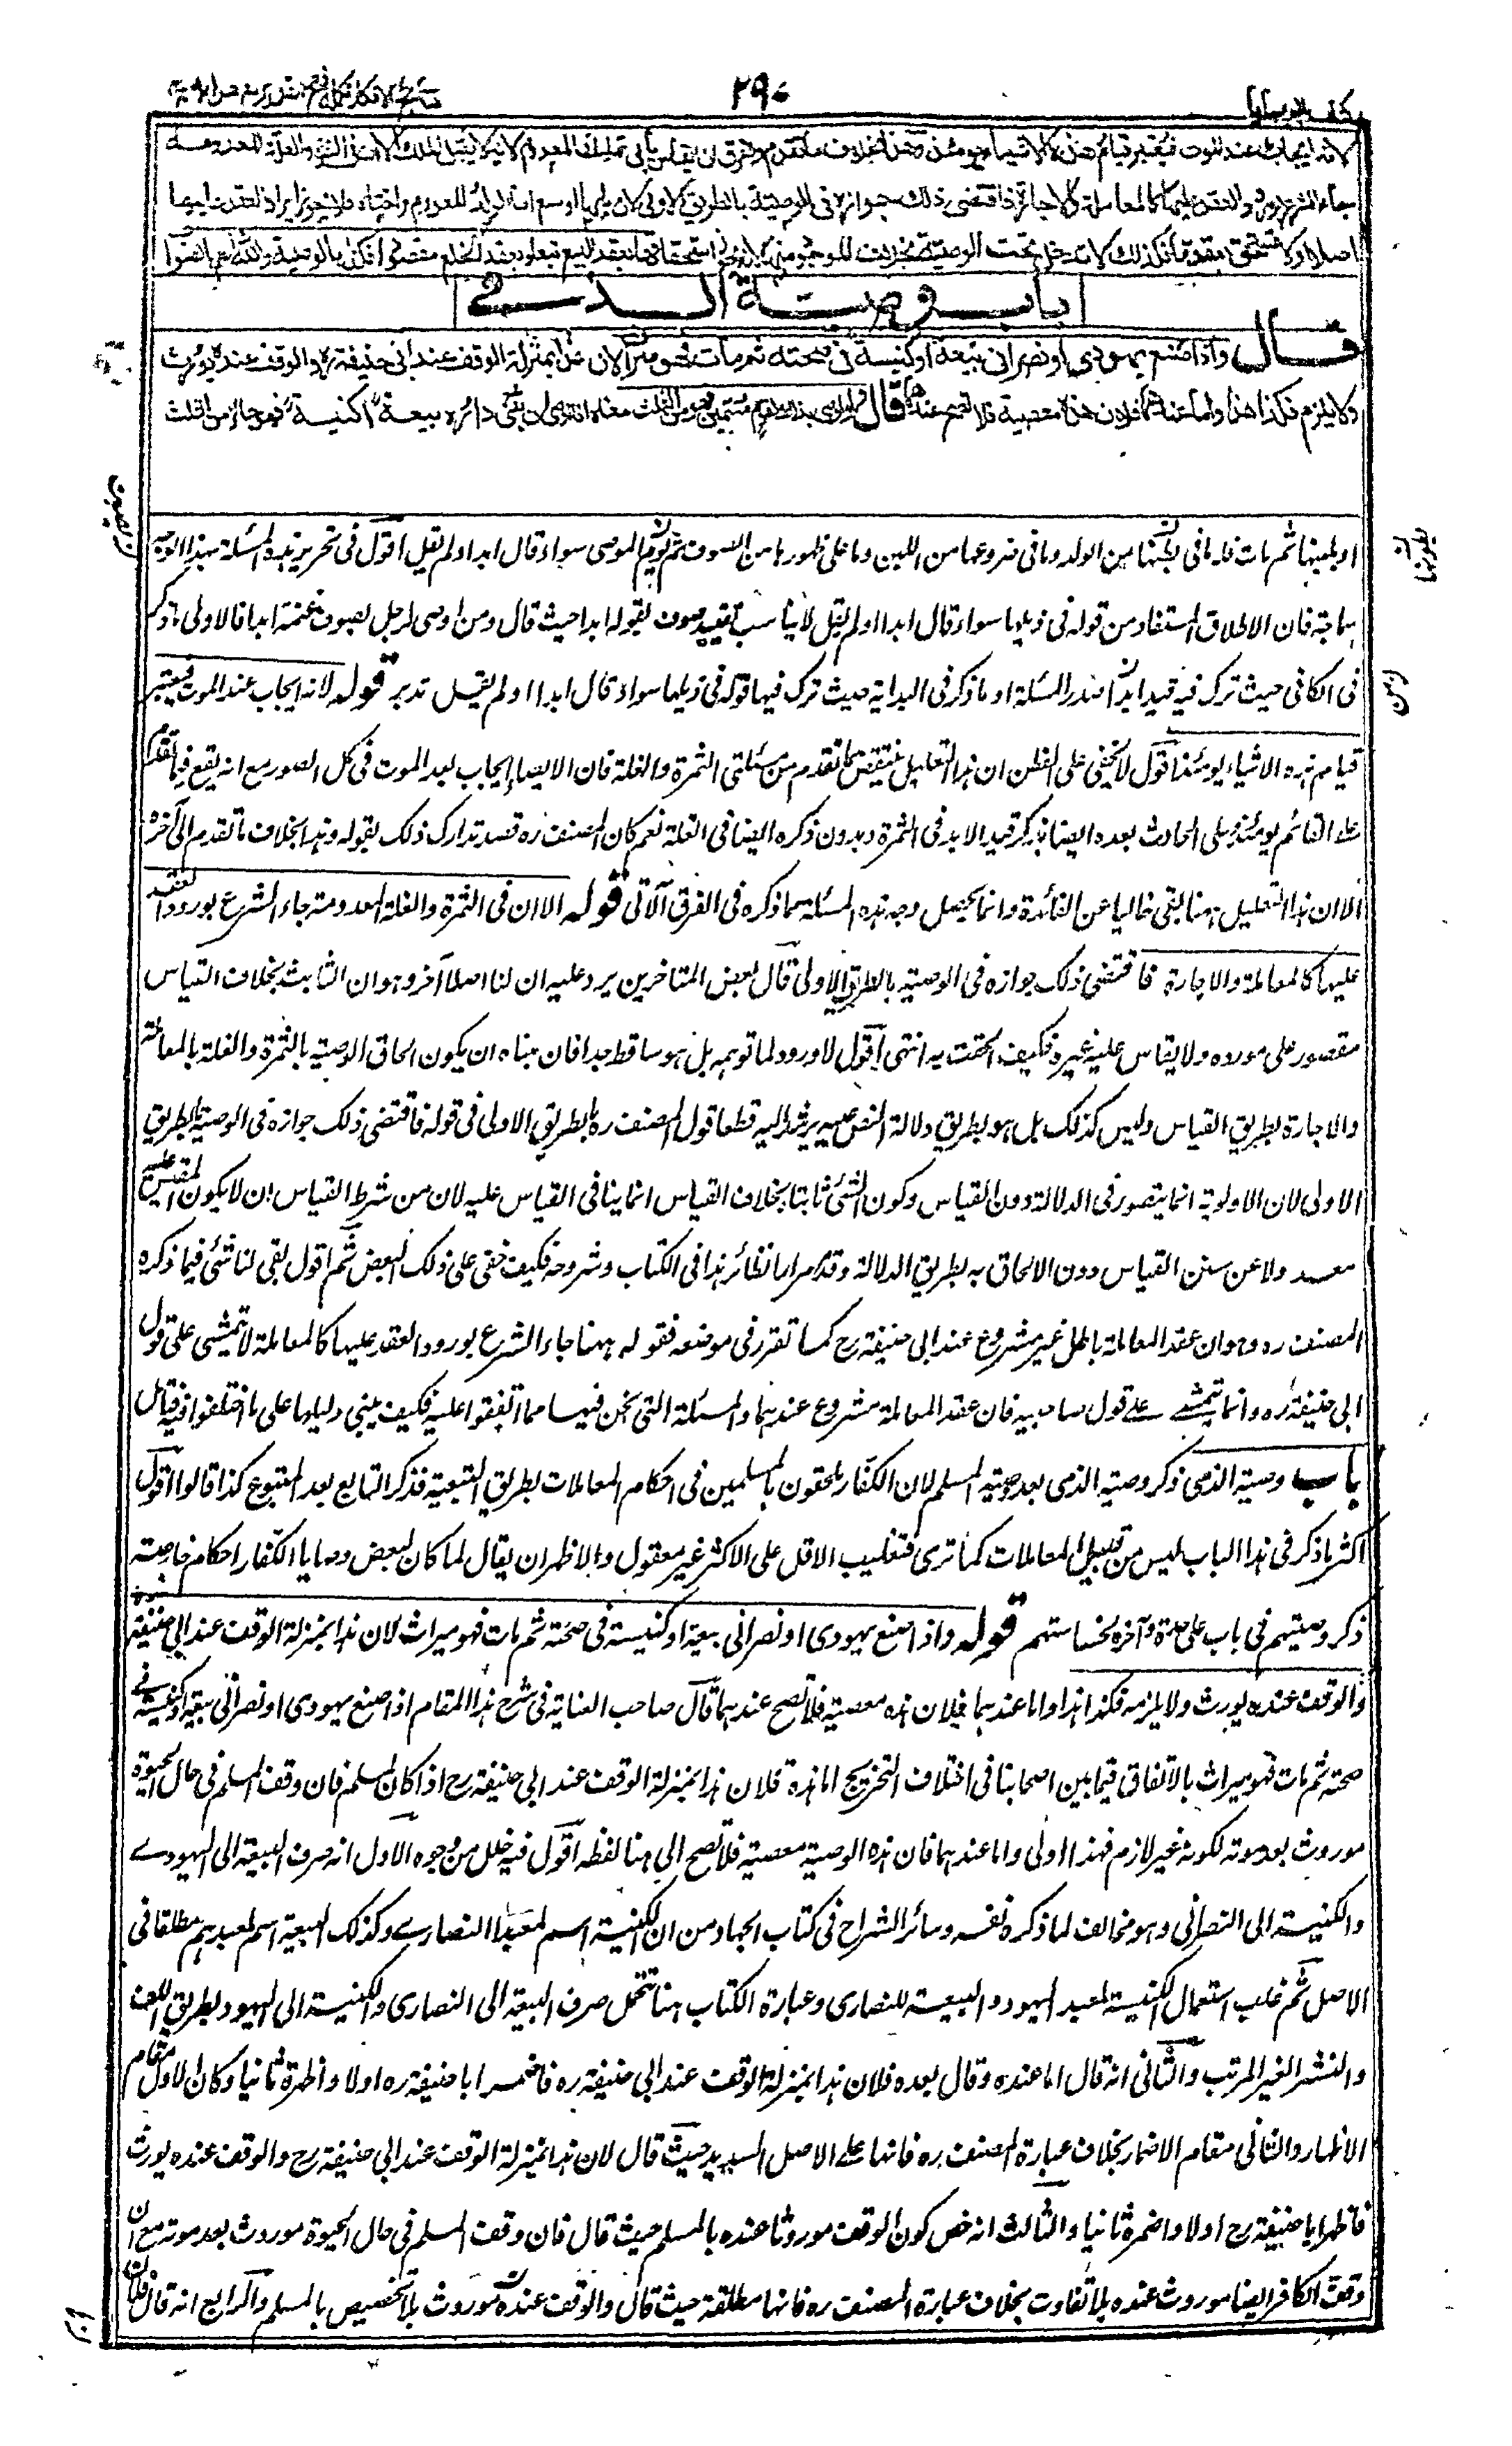 كتاب الوصايا
٢٩٠
نتائج الافكار تكملة فتح القدير مع هداية ج ٤
لانه ايجاب عند الموت فيعتبر قيام هذه الاشياء يومئذ وهذا بخلاف ما تقدم والفرق ان القياس يأبى تمليك المعدوم لانه لا يقبل الملك الا ان فى الثمرة والغلة المعدومة
جاء الشرع بورود العقد عليها كالمعاملة والاجارة فاقتضى ذلك جوازه فى الوصية بالطريق الاولى لان بابها اوسع اما الولد المعدوم واختاه فلا يجوز ايراد العقد عليها
اصلا ولا تستحق بعقد ما فكذلك لا تدخل تحت الوصية بخلاف الموجود منها لانه يجوز استحقاقها بعقد البيع تبعا وبعقد الخلع مقصودا فكذا بالوصية والله اعلم بالصواب
باب وصية الذمي
قال واذا صنع يهودى او نصرانى بيعة او كنيسة فى صحته ثم مات فهو ميراث لان هذا بمنزلة الوقف عند ابى حنيفة ره والوقف عنده يورث
ولا يلزم فكذا هذا واما عندهما فلان هذه معصية فلا تصح عندهما قال ولو اوصى بذلك لقوم مسمين فهو من الثلث معناه اذا اوصى ان تبنى داره بيعة او كنيسة فهو جائز من الثلث
او بلبنها ثم مات فله ما فى بطنها من الولد وما فى ضروعها من اللبن وما على ظهورها من الصوف يوم يموت الموصى سواء قال ابدا او لم يقل اقول فى تحرير هذه المسئلة بهذا الوجه
سماجة فان الاطلاق المستفاد من قوله فى ذيلها سواء قال ابدا او لم يقل لا يناسب تقييد صوف بقوله ابدا حيث قال ومن اوصى لرجل بصوف غنمه ابدا فالاولى ما ذكر
فى الكافى حيث ترك فيه قيد ابدا فى صدر المسئلة او ما ذكر فى البداية حيث ترك فيها قوله فى ذيلها سواء قال ابدا او لم يقل تدبر قوله لانه ايجاب عند الموت فيعتبر
قيام هذه الاشياء يومئذ اقول لا يخفى على الفطن ان هذا التعليل ينتقض بما تقدم من مسئلتى الثمرة والغلة فان الايصاء ايجاب بعد الموت فى كل الصور مع انه يقع فيما تقدم
على القائم يومئذ وعلى الحادث بعده ايضا بذكر قيد الابد فى الثمرة وبدون ذكره ايضا فى الغلة نعم كان المصنف ره قصد تدارك ذلك بقوله وهذا بخلاف ما تقدم الى آخره
الا ان هذا التعليل ههنا يبقى خاليا عن الفائدة وانما يحصل وجه هذه المسئلة مما ذكره فى الفرق الآتى قوله الا ان فى الثمرة والغلة المعدومة جاء الشرع بورود العقد
عليها كالمعاملة والاجارة فاقتضى ذلك جوازه فى الوصية بالطريق الاولى قال بعض المتاخرين يرد عليه ان لنا اصلا آخر وهو ان الثابت بخلاف القياس
مقصور على مورده ولا يقاس عليه غيره فكيف الحقت به انتهى اقول لا ورود لما توهمه بل هو ساقط جدا فان مبناه ان يكون الحاق الوصية بالثمرة والغلة بالمعاملة
والاجارة بطريق القياس وليس كذلك بل هو بطريق دلالة النص يرشد اليه قطعا قول المصنف ره بالطريق الاولى فى قوله فاقتضى ذلك جوازه فى الوصية بالطريق
الاولى لان الاولوية انما يتصور فى الدلالة دون القياس وكون الشئ ثابتا بخلاف القياس انما ينافى القياس عليه لان من شرط القياس ان لا يكون المقيس عليه
معدولا عن سنن القياس دون الالحاق به بطريق الدلالة وقد مر مرارا نظائر هذا فى الكتاب وشروحه فكيف خفى على ذلك البعض ثم اقول بقى لنا شئ فيما ذكره
المصنف ره وهو ان عقد المعاملة باطل غير مشروع عند ابى حنيفة رح كما تقرر فى موضعه فقوله ههنا جاء الشرع بورود العقد عليها كالمعاملة لا يتمشى على قول
ابى حنيفة ره وانما يتمشى على قول صاحبيه فان عقد المعاملة مشروع عندهما والمسئلة التى نحن فيها مما اتفقوا عليه فكيف يبنى دليلها على ما اختلفوا فيه فتامل
باب وصية الذمى ذكر وصية الذمى بعد وصية المسلم لان الكفار ملحقون بالمسلمين فى احكام المعاملات بطريق التبعية فذكر التابع بعد المتبوع كذا قالوا اقول
اكثر ما ذكر فى هذا الباب ليس من قبيل المعاملات كما ترى فتغليب الاقل على الاكثر غير معقول والاظهر ان يقال لما كان لبعض وصايا الكفار احكام خاصة
ذكر وصيتهم فى باب على حدة وآخره لخساستهم قوله واذا صنع يهودى او نصرانى بيعة او كنيسة فى صحته ثم مات فهو ميراث لان هذا بمنزلة الوقف عند ابى حنيفة
والوقف عنده يورث ولا يلزم فكذا هذا واما عندهما فلان هذه معصية فلا تصح عندهما قال صاحب العناية فى شرح هذا المقام اذا صنع يهودى او نصرانى بيعة او كنيسة فى
صحته ثم مات فهو ميراث بالاتفاق فيما بين اصحابنا فى اختلاف التخريج اما عنده فلان هذا بمنزلة الوقف عند ابى حنيفة رح اذا كان لمسلم فان وقف المسلم فى حال الحيوة
موروث بعد موته لكونه غير لازم فهذا اولى واما عندهما فان هذه الوصية معصية فلا تصح الى هنا لفظه اقول فيه خلل من وجوه الاول انه صرف البيعة الى اليهودى
والكنيسة الى النصرانى وهو مخالف لما ذكره نفسه وسائر الشراح فى كتاب الجهاد من ان الكنيسة اسم لمعبد النصارى وكذلك البيعة اسم لمعبدهم مطلقا فى
الاصل ثم غلب استعمال الكنيسة لمعبد اليهود والبيعة للنصارى وعبارة الكتاب هنا تتحمل صرف البيعة الى النصارى والكنيسة الى اليهود بطريق اللف
والنشر الغير المرتب والثانى انه قال اما عنده وقال بعده فلان هذا بمنزلة الوقف عند ابى حنيفة ره فاضمر ابا حنيفة ره اولا واظهره ثانيا وكان الاول مقام
الاظهار والثانى مقام الاضمار بخلاف عبارة المصنف ره فانها على الاصل السديد حيث قال لان هذا بمنزلة الوقف عند ابى حنيفة رح والوقف عنده يورث
فاظهر ابا حنيفة رح اولا واضمره ثانيا والثالث انه خص كون الوقف موروثا عنده بالمسلم حيث قال فان وقف المسلم فى حال الحيوة موروث بعد موته مع ان
وقف الكافر ايضا موروث عنده بلا تفاوت بخلاف عبارة المصنف ره فانها مطلقة حيث قال والوقف عنده موروث بلا تخصيص بالمسلم والرابع انه قال فان